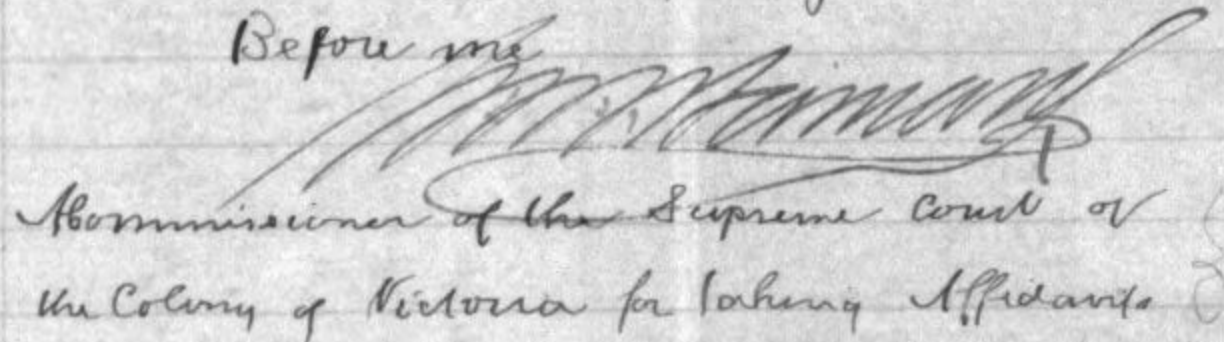 Before me
A Commissioner of the Supreme Court of
the Colony of Victoria for taking Affidavits